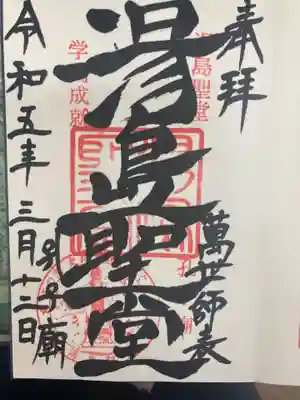 奉拝
萬世師表
湯島聖堂
湯島聖堂
学業成就
孔子廟
令和五年三月十二日